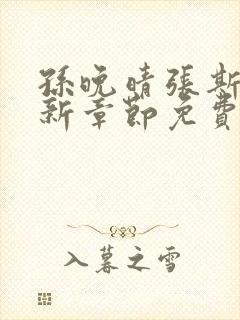 孫晚晴張斯
新章節免費
入暮之雪